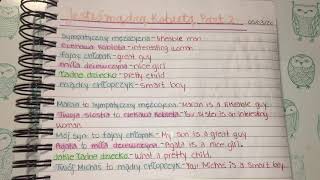 Jesteś mądrą kobietą Part 2
Sympatyczny mężczyzna - likeable man
ciekawa kobieta - interesting woman
fajny chłopak - great guy
miła dziewczyna - nice girl
ładne dziecko - pretty child
mądry chłopczyk - smart boy
Marcin to sympatyczny mężczyzna - Marcin is a likeable guy.
Twoja siostra to ciekawa kobieta - Your sister is an interesting
woman.
Mój syn to fajny chłopak - My son is a great guy
Agata to miła dziewczyna - Agata is a nice girl.
Jakie ładne dziecko - What a pretty child.
Twój Michaś to mądry chłopczyk - Your Michas is a smart boy.